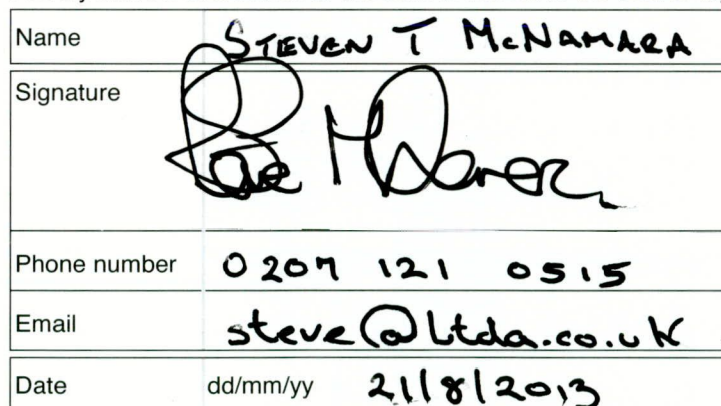 Name STEVEN T McNAMARA
Signature Steve McNamara
Phone number 0207 121 0515
Email steve@ltda.co.uk
Date dd/mm/yy 21/8/2013